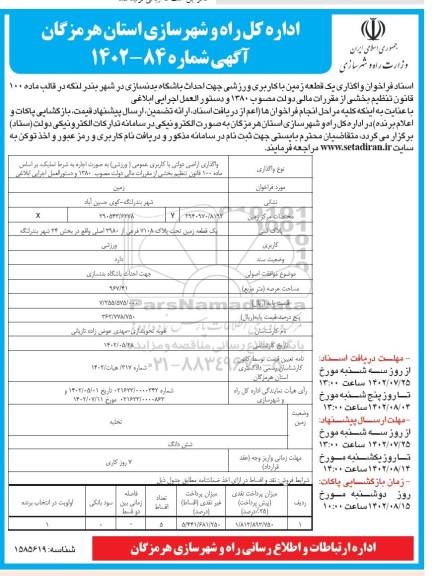 اداره کل راه و شهرسازی استان هرمزگان
آگهی شماره ۸۴-۱۴۰۲
جمهوری اسلامی ایران
وزارت راه و شهرسازی
اسناد فراخوان واگذاری یک قطعه زمین با کاربری ورزشی جهت احداث باشگاه بدنسازی در شهر بندر لنگه در قالب ماده ۱۰۰
قانون تنظیم بخشی از مقررات مالی دولت مصوب ۱۳۸۰ و دستور العمل اجرایی ابلاغی
با عنایت به اینکه کلیه مراحل انجام فراخوان ها (اعم از دریافت اسناد، ارائه تضمین، ارسال پیشنهاد قیمت، بازگشایی پاکات و
اعلام برنده) در اداره کل راه و شهرسازی استان هرمزگان به صورت الکترونیکی در سامانه تدارکات الکترونیکی دولت (ستاد)
برگزار می گردد، متقاضیان محترم بایستی جهت ثبت نام در سامانه مذکور و دریافت نام کاربری و رمز عبور و اخذ توکن به
سایت www.setadiran.ir مراجعه فرمایند.
نوع واگذاری
واگذاری اراضی دولتی با کاربری عمومی (ورزشی) به صورت اجاره به شرط تملیک بر اساس
ماده ۱۰۰ قانون تنظیم بخشی از مقررات مالی دولت مصوب ۱۳۸۰ و دستورالعمل اجرایی ابلاغی
مورد فراخوان
زمین
نشانی
شهر بندرلنگه-کوی حسین آباد
مختصات مرکز زمین
۲۹۴۰۹۷۰/۸۱۹۲ Y ۲۹۰۵۴۲/۶۲۷۸ X
پلاک ثبتی
یک قطعه زمین تحت پلاک ۷۱۰۸ فرعی از ۲۹۸۰ اصلی واقع در بخش ۲۴ شهر بندرلنگه
کاربری
ورزشی
وضعیت سند
دارد
موضوع موافقت اصولی
جهت احداث باشگاه بدنسازی
مساحت عرصه (متر مربع)
۹۶۷/۴۱
قیمت پایه (ریال)
۷/۲۵۵/۵۷۵/۰۰۰
پنج درصد قیمت پایه (ریال)
۳۶۲/۷۷۸/۷۵۰
نام کارشناسان
تاریخ کارشناسی
۱۴۰۲/۰۵/۲۸
نامه تعیین قیمت توسط کانون
کارشناسان رسمی دادگستری
استان هرمزگان
شماره ۳۱۷/هیات/۱۴۰۲
رأی هیأت نمایندگی اداره کل راه
و شهرسازی
شماره ۰۲۱۶۲۲/۰۰۰۰۳۴۲ تاریخ ۱۴۰۲/۰۵/۰۱ و
۰۲۱۶۲۲/۰۰۰۰۸۶۳ مورخ ۱۴۰۲/۰۷/۱۱
وضعیت
زمین
تخلیه
شش دانگ
مهلت زمانی واریز وجه (عقد
قرارداد)
۷ روز کاری
شرایط فروش: نقد و اقساط در ازای اخذ ضمانتنامه مطابق جدول ذیل
ردیف
میزان پرداخت نقدی
(پیش پرداخت)
(۲۵٪ درصد)
میزان پرداخت
غیر نقدی (اقساط)
(درصد)
تعداد
اقساط
فاصله
زمانی بین
دو قسط
سود بانکی
اولویت در انتخاب برنده
۱ ۱/۸۱۳/۸۹۳/۷۵۰ ۵/۴۴۱/۶۸۱/۲۵۰ ۵ - ۰ ۱
- مهلت دریافت اسناد:
از روز سه شنبه مورخ
۱۴۰۲/۰۷/۲۵ ساعت ۱۳:۰۰
تا روز پنج شنبه مورخ
۱۴۰۲/۰۸/۰۴ ساعت ۱۳:۰۰
- مهلت ارسال پیشنهاد:
از روز سه شنبه مورخ
۱۴۰۲/۰۷/۲۵ ساعت ۱۳:۰۰
تا روز یکشنبه مورخ
۱۴۰۲/۰۸/۱۴ ساعت ۱۴:۰۰
- زمان بازگشایی پاکات:
روز دوشنبه مورخ
۱۴۰۲/۰۸/۱۵ ساعت ۱۰:۰۰
اداره ارتباطات و اطلاع رسانی راه و شهرسازی هرمزگان
شناسه: ۱۵۸۵۶۱۹
ParsNamadData
۰۲۱-۸۸۳۴۹۶